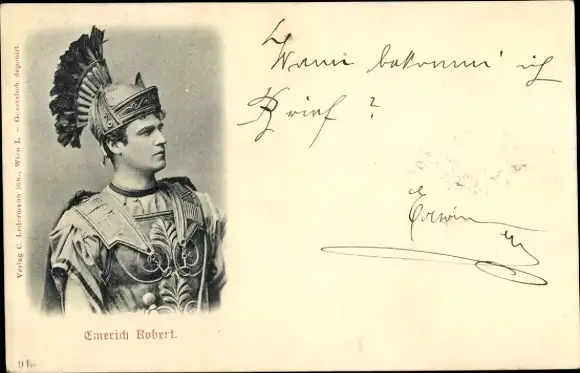 Verlag C. Ledermann jun., Wien I. – Gesetzlich deponirt.
Wann bekomm' ich
Brief?
Erwin
Emerich Robert.